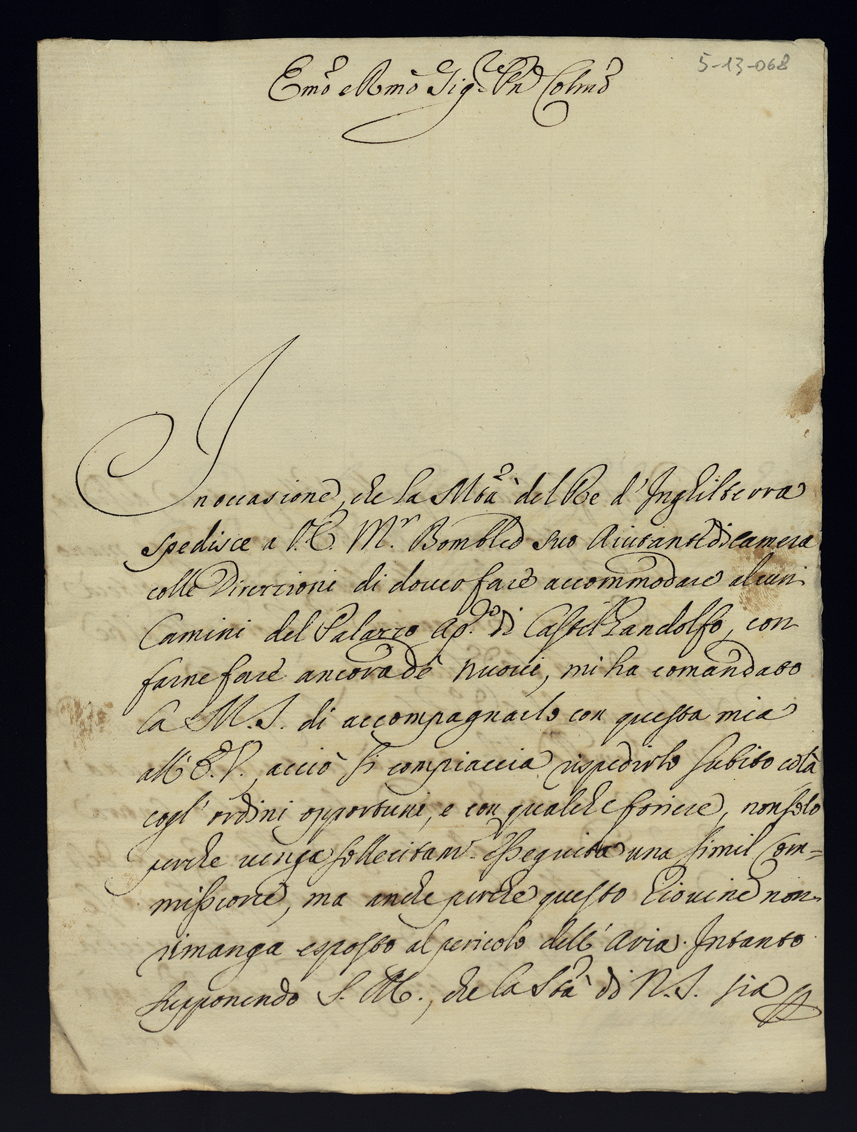 5-13-068
Emo e Rmo Sigr Pn Colmo
In occasione, che la Mtà del Re d'Inghilterra
spedisce a V.E. Mr. Bombled suo Aiutante di camera
colle Direzzioni di dover fare accommodare alcuni
Camini del Palazzo Apco di Castel Gandolfo, con
farne fare ancora de nuovi, mi ha comandato
la M.S. di accompagnarlo con questa mia
all'E.V., acciò si compiaccia rispedirlo subito colà
cogl'ordini opportuni, e con qualche foriere, non solo
perche venga sollecitamte esseguita una simil Com=
missione, ma anche perche questo Giovine non
rimanga esposto al pericolo dell'Aria. Intanto
supponendo S.M., che la Stà di N.S. sia